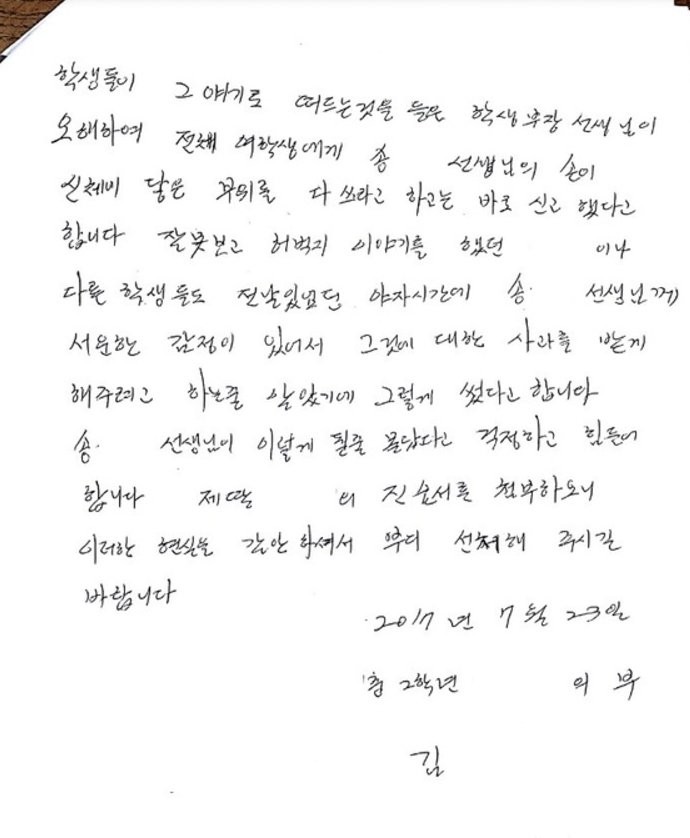 학생들이 그 얘기로 떠드는것을 들은 학생부장 선생님이
오해하여 전체 여학생에게 송 선생님의 손이
신체에 닿은 부위를 다 쓰라고 하고는 바로 신고 했다고
합니다 잘못보고 허벅지 이야기를 했던 이나
다른 학생들도 전날있었던 야자시간에 송 선생님께
서운한 감정이 있어서 그것에 대한 사과를 받게
해주려고 하는줄 알았기에 그렇게 썼다고 합니다
송 선생님이 이렇게 될줄 몰랐다고 걱정하고 힘들어
합니다 제딸 의 진술서를 첨부하오니
이러한 현실을 감안 하셔서 부디 선처해 주시길
바랍니다
2017년 7월 23일
중 2학년 의 부
김